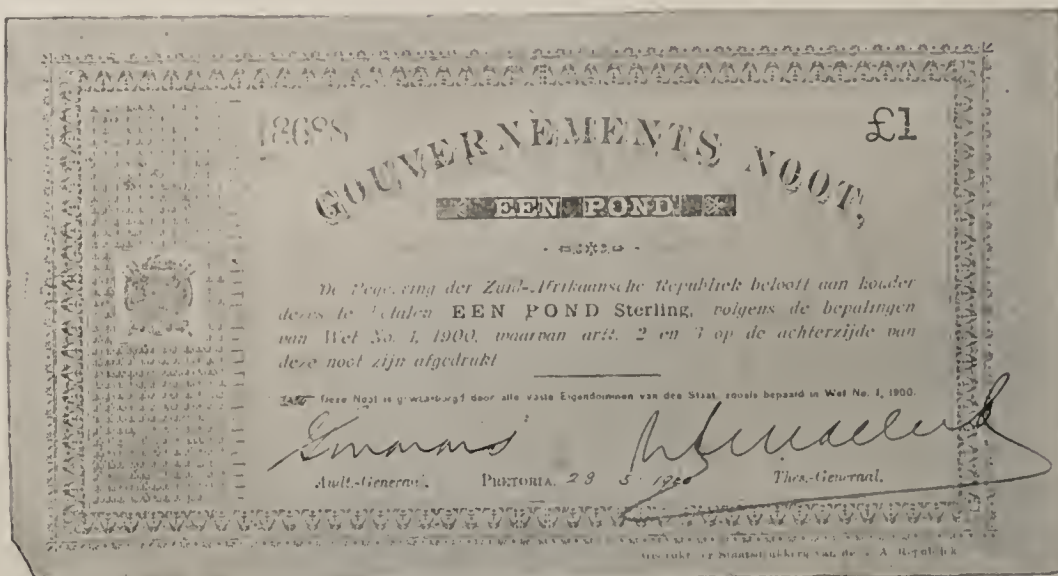 18698 £1
GOUVERNEMENTS NOOT,
EEN POND
De Regeering der Zuid-Afrikaansche Republiek belooft aan houder
dezes te betalen EEN POND Sterling, volgens de bepalingen
van Wet No. 1, 1900, waarvan artt. 2 en 3 op de achterzijde van
deze noot zijn afgedrukt
Deze Noot is gewaarborgd door alle vaste Eigendommen van den Staat, zooals bepaald in Wet No. 1, 1900.
Audt.-Generaal. PRETORIA, 28 5 1900 Thes.-Generaal.
Gedrukt ter Staatsdrukkerij van de Z. A. Republiek